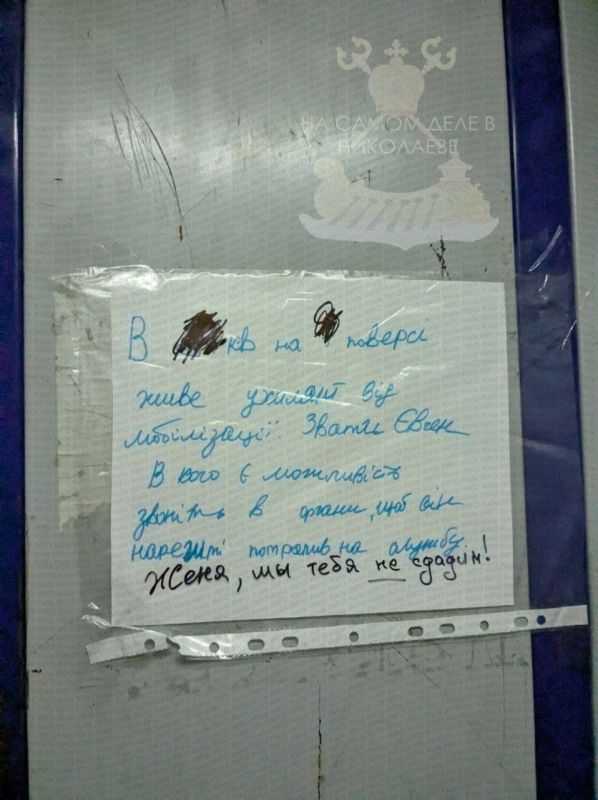 НА САМОМ ДЕЛЕ В
НИКОЛАЕВЕ
В кв на поверсі
живе ухилянт від
мобілізації. Звати Євген
В кого є можливість
звоніть в органи, щоб він
нарешті потрапив на службу.
Женя, мы тебя не сдадим!